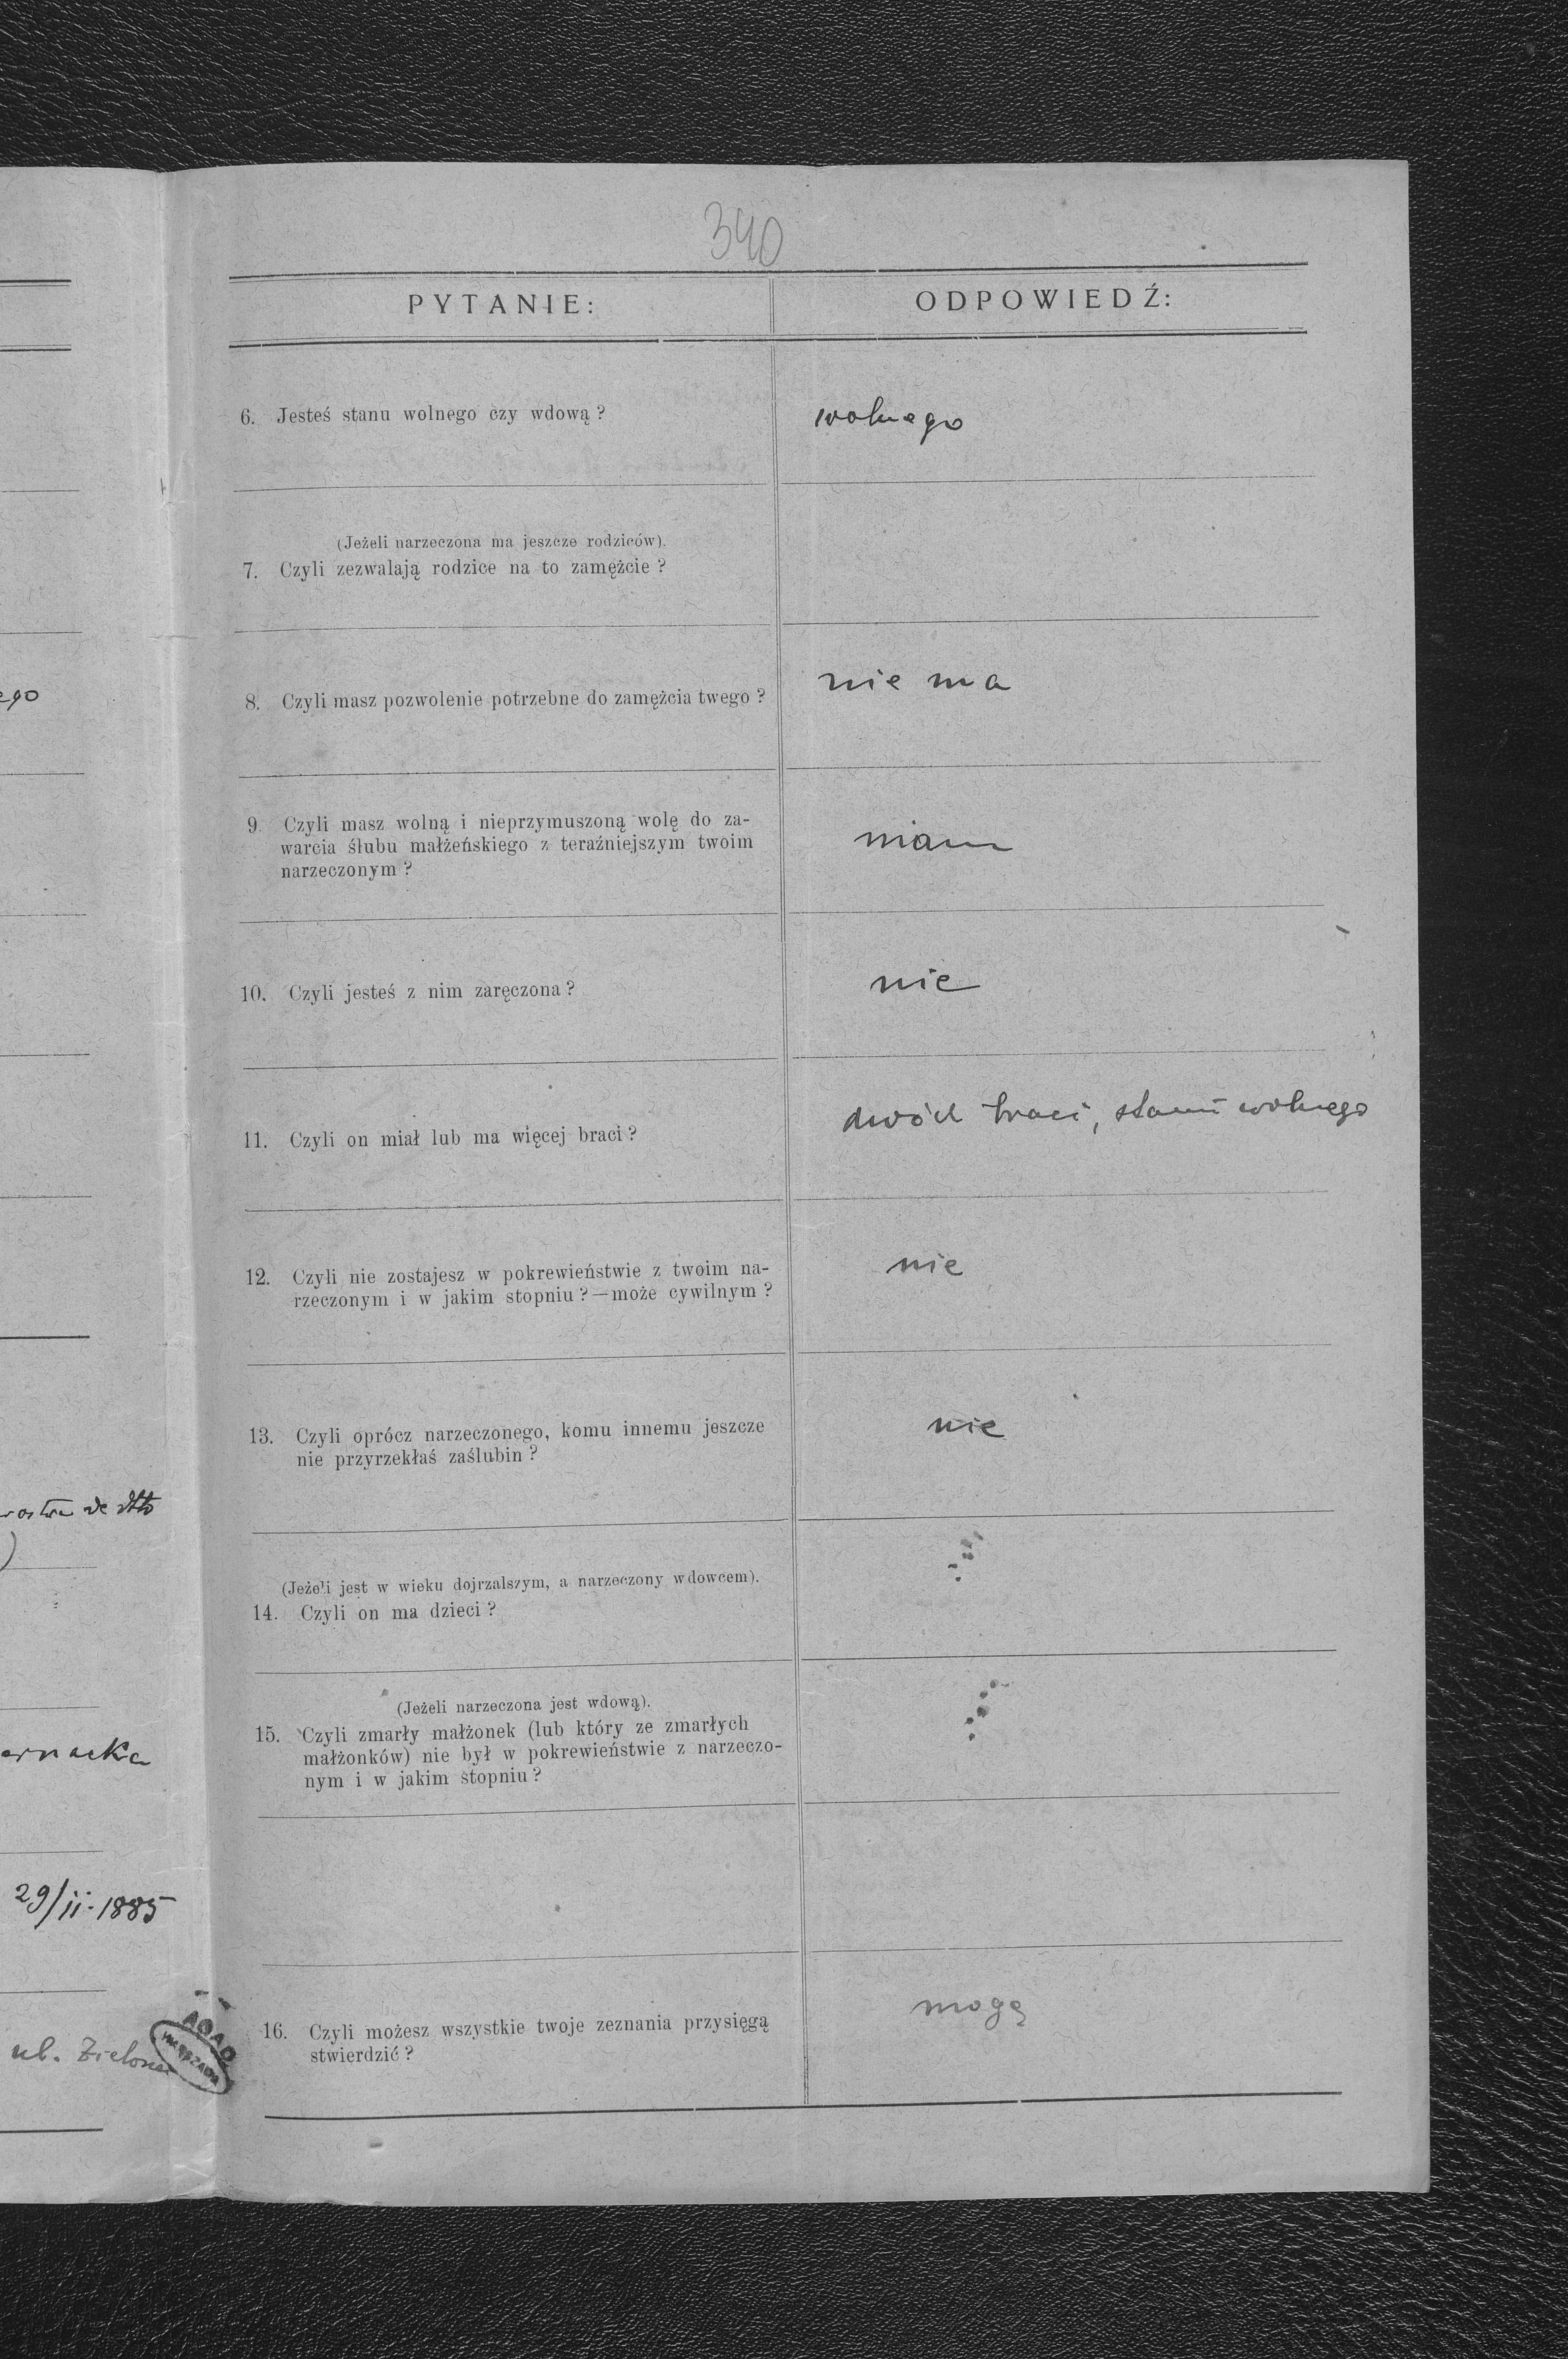 340
PYTANIE:
ODPOWIEDŹ:
6. Jesteś stanu wolnego czy wdową?
wolnego
(Jeżeli narzeczona ma jeszcze rodziców).
7. Czyli zezwalają rodzice na to zamężcie?
8. Czyli masz pozwolenie potrzebne do zamężcia twego?
nie ma
9. Czyli masz wolną i nieprzymuszoną wolę do za-
warcia ślubu małżeńskiego z teraźniejszym twoim
narzeczonym?
mam
10. Czyli jesteś z nim zaręczona?
nie
11. Czyli on miał lub ma więcej braci?
dwóch braci, stanu wolnego
12. Czyli nie zostajesz w pokrewieństwie z twoim na-
rzeczonym i w jakim stopniu?—może cywilnym?
nie
13. Czyli oprócz narzeczonego, komu innemu jeszcze
nie przyrzekłaś zaślubin?
nie
(Jeżeli jest w wieku dojrzalszym, a narzeczony wdowcem).
14. Czyli on ma dzieci?
(Jeżeli narzeczona jest wdową).
15. Czyli zmarły małżonek (lub który ze zmarłych
małżonków) nie był w pokrewieństwie z narzeczo-
nym i w jakim stopniu?
16. Czyli możesz wszystkie twoje zeznania przysięgą
stwierdzić?
mogę
ego
29/ii.1885
ul. Zielona
AGAD
WARSZAWA